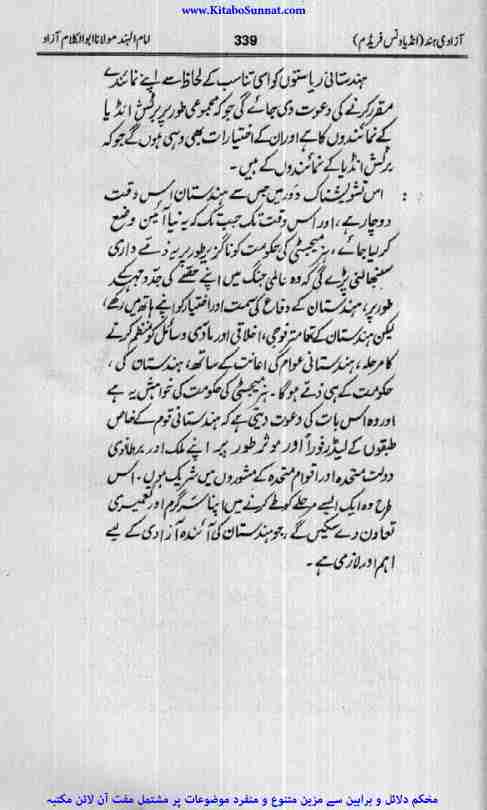 www.KitaboSunnat.com
آزادی ہند (انڈیا ونس فریڈم) 339 امام الہند مولانا ابوالکلام آزاد
ہندستانی ریاستوں کو اسی تناسب کے لحاظ سے اپنے نمائندے
مقرر کرنے کی دعوت دی جائے گی جو کہ مجموعی طور پر برٹش انڈیا
کے نمائندوں کا ہے اور ان کے اختیارات بھی وہی ہوں گے جو کہ
برٹش انڈیا کے نمائندوں کے ہیں۔
: اس تشویشناک دور میں جس سے ہندستان اس وقت
دوچار ہے، اور اس وقت تک جب تک کہ نیا آئین وضع
کر لیا جائے، ہز میجسٹی کی حکومت کو ناگزیر طور پر یہ ذمے داری
سنبھالنی پڑے گی کہ وہ عالمی جنگ میں اپنے حصے کی جدوجہد کے
طور پر، ہندستان کے دفاع کی سمت اور اختیار کو اپنے ہاتھ میں رکھے،
لیکن ہندستان کے تمامتر فوجی، اخلاقی اور مادی وسائل کو منظم کرنے
کا مرحلہ، ہندستانی عوام کی اعانت کے ساتھ، ہندستان کی،
حکومت کے ہی ذمے ہوگا۔ ہز میجسٹی کی حکومت کی خواہش یہ ہے
اور وہ اس بات کی دعوت دیتی ہے کہ ہندستانی قوم کے خاص
طبقوں کے لیڈر فوراً اور موثر طور پر اپنے ملک اور برطانوی
دولت متحدہ اور اقوام متحدہ کے مشوروں میں شریک ہوں۔ اس
طرح وہ ایک ایسے مرحلے کو طے کرنے میں اپنا سرگرم اور تعمیری
تعاون دے سکیں گے، جو ہندستان کی آئندہ آزادی کے لیے
اہم اور لازمی ہے۔
محکم دلائل و براہین سے مزین متنوع و منفرد موضوعات پر مشتمل مفت آن لائن مکتبہ